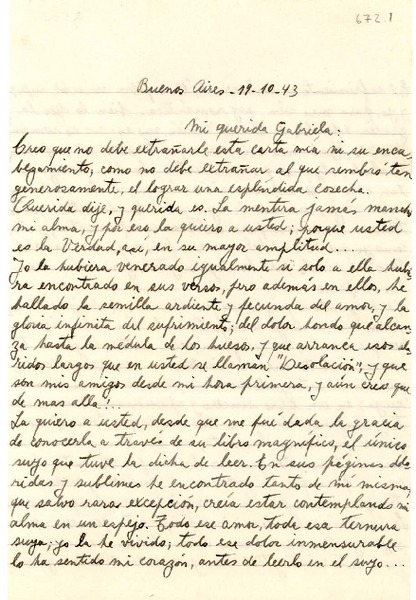 672.1
Buenos Aires - 19-10-43
Mi querida Gabriela:
Creo que no debe extrañarle esta carta mia ni su enca-
bezamiento; como no debe extrañar al que sembró tan
generosamente, el lograr una esplendida cosecha.
Querida dije, y querida es. La mentira jamás manchó
mi alma, y por eso la quiero a usted; porque usted
es la Verdad, así, en su mayor amplitud...
Yo la hubiera venerado igualmente si solo a ella hubie-
ra encontrado en sus versos, pero además en ellos, he
hallado la semilla ardiente y fecunda del amor, y la
gloria infinita del sufrimiento; del dolor hondo que alcan-
za hasta la médula de los huesos, y que arranca esos ala-
ridos largos que en usted se llaman "Desolación", y que
son mis amigos desde mi hora primera, y aún creo que
de mas allá!...
La quiero a usted, desde que me fué dada la gracia
de conocerla a través de su libro magnífico, el único
suyo que tuve la dicha de leer. En sus páginas dolo-
ridas y sublimes he encontrado tanto de mi misma,
que salvo rara excepción, creía estar contemplando mi
alma en un espejo. Todo ese amor, toda esa ternura
suya; yo la he vivido; todo ese dolor inmensurable
lo ha sentido mi corazón, antes de leerlo en el suyo...